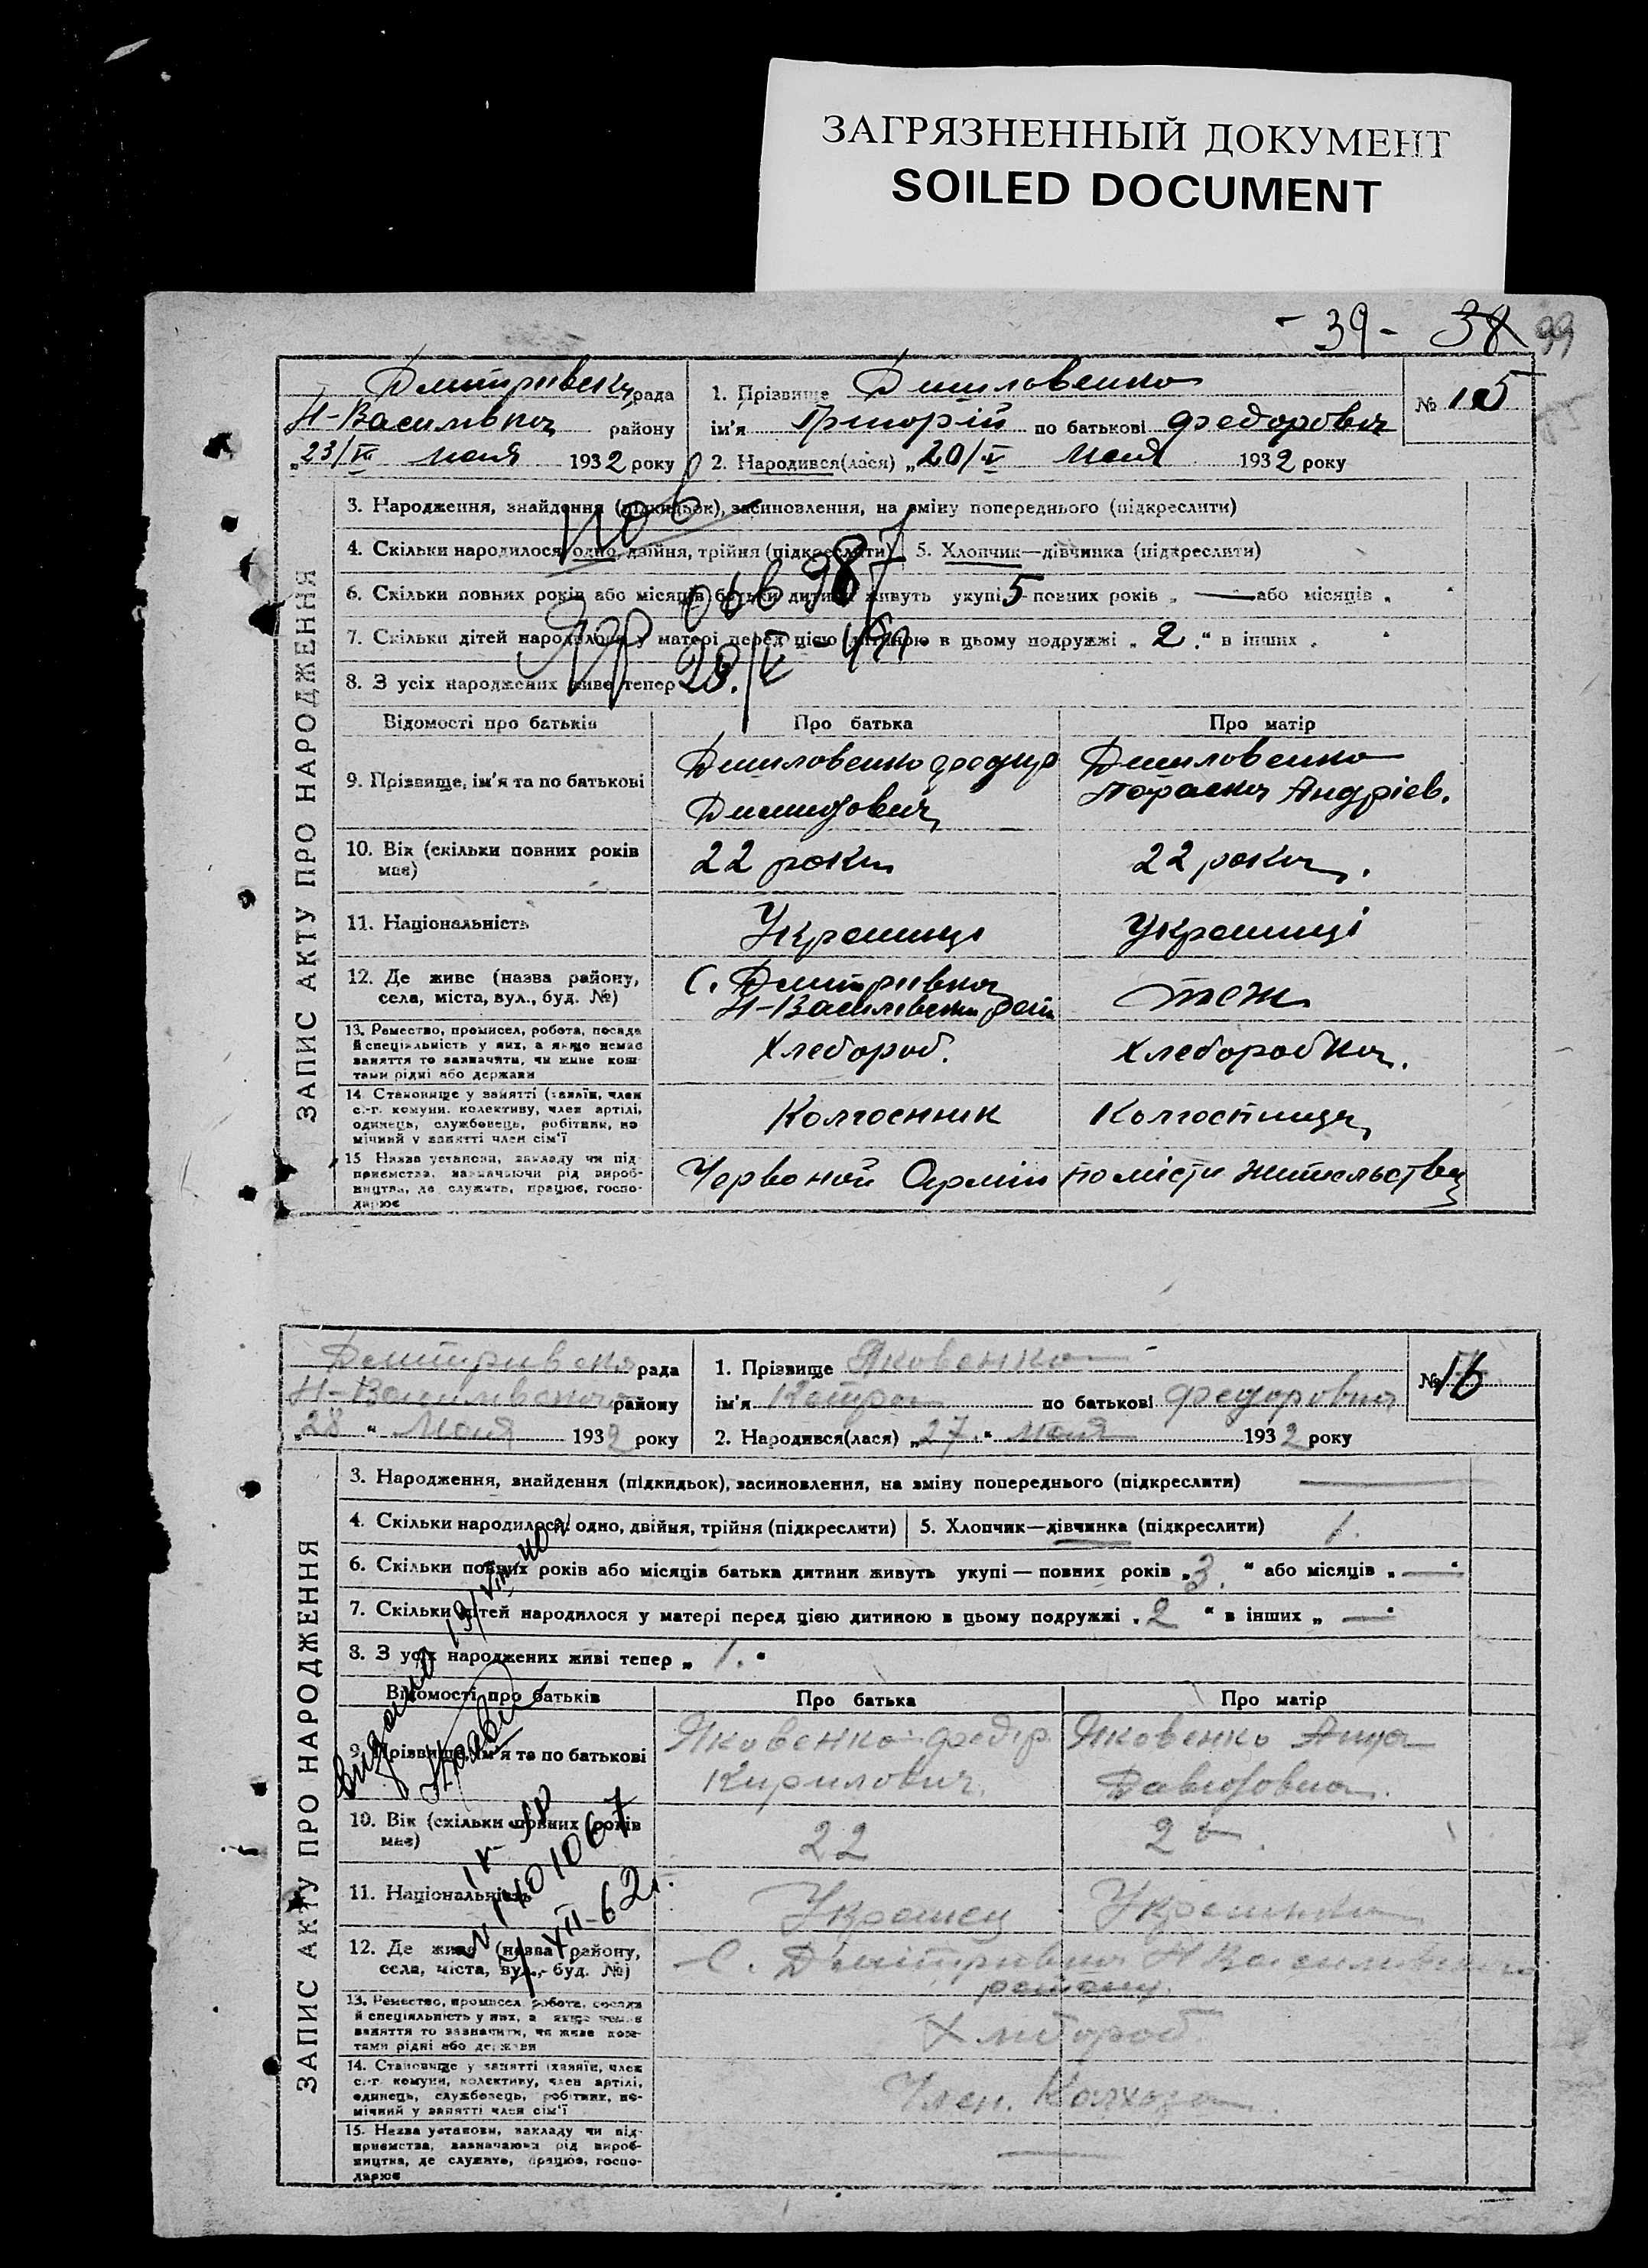 ЗАГРЯЗНЕННЫЙ ДОКУМЕНТ
SOILED DOCUMENT
- 39 - 38 99
рада 1. Прізвище
Н-Василівка району ім'я Григорій по батькові Федорович № 15
"23/ мая 1932 року 2. Народився(лася) „20/V Мая 1932 року
ЗАПИС АКТУ ПРО НАРОДЖЕННЯ
3. Народження, знайдення (підкидьок), засиновлення, на зміну попереднього (підкреслити)
4. Скільки народилося: одно, двійня, трійня (підкреслити) 5. Хлопчик—дівчинка (підкреслити)
6. Скільки повних років або місяців батьки дитини живуть укупі 5 повних років „ — або місяців „
7. Скільки дітей народилося у матері перед цією дитиною в цьому подружжі „ 2 “ в інших „
8. З усіх народжених живе тепер
Відомості про батьків Про батька Про матір
9. Прізвище, ім'я та по батькові
Андріев.
10. Вік (скільки повних років має) 22 роки 22 роки.
11. Національність Українці Українці
12. Де живе (назва району, С. Дмитрівка
села, міста, вул., буд. №) Н-Василівськи тож
13. Ремество, промисел, робота, посада
й спеціяльність у них, а якщо немає Хлебороб. Хлеборобка.
заняття то зазначити, чи живе кош-
тами рідні або держави
14. Становище у занятті (хазяїн, член
с.-г. комуни, колективу, член артілі, Колгосник Колгостница
одинець, службовець, робітник, по-
мічний у занятті член сім'ї
15 Назва установи, закладу чи під-
приємства, зазначаючи рід вироб- Червоной Армии по місти жительства
ництва, де служить, працює, госпо-
дарює
рада 1. Прізвище Яковенко № 16
району ім'я по батькові Федоровна
„28 “ Мая 1932 року 2. Народився(лася) „27 “ мая 1932 року
ЗАПИС АКТУ ПРО НАРОДЖЕННЯ
3. Народження, знайдення (підкидьок), засиновлення, на зміну попереднього (підкреслити) —
4. Скільки народилося: одно, двійня, трійня (підкреслити) 5. Хлопчик—дівчинка (підкреслити) 1.
6. Скільки повних років або місяців батька дитини живуть укупі — повних років „3. “ або місяців „ — “
7. Скільки дітей народилося у матері перед цією дитиною в цьому подружжі „ 2 “ в інших „ — “
8. З усіх народжених живі тепер „ 1. “
Відомості про батьків Про батька Про матір
Яковенко Федір Яковенко
9. Прізвище, ім'я та по батькові Кирилович. Давидовна.
10. Вік (скільки повних років має) 22
11. Національність Украинец Украинка
12. Де живе (назва району, С. Дмітривка
села, міста, вул., буд. №) району.
13. Ремество, промисел, робота, посада
й спеціяльність у них, а якщо немає Хлібороб.
заняття то зазначити, чи живе кош-
тами рідні або держави
14. Становище у занятті (хазяїн, член
с.-г. комуни, колективу, член артілі, Член. Колхоза.
одинець, службовець, робітник, по-
мічний у занятті член сім'ї
15. Назва установи, закладу чи під-
приємства, зазначаючи рід вироб- —
ництва, де служить, працює, госпо-
дарює